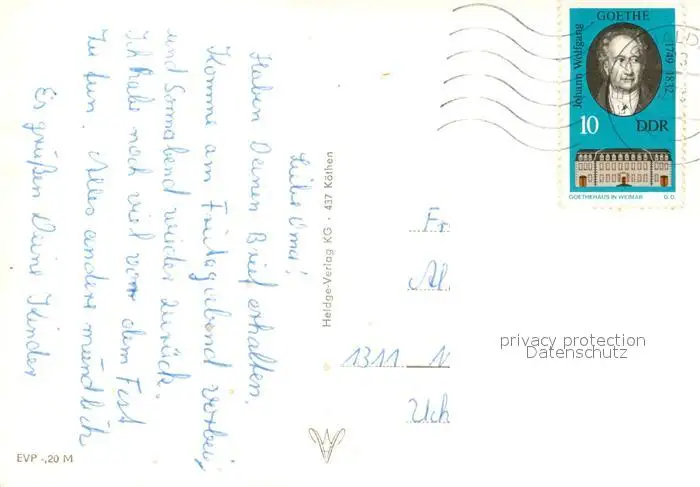 Liebe Oma!
Haben Deinen Brief erhalten.
Komme am Freitagabend vorbei,
und Sonnabend wieder zurück.
Ich habe noch viel vor dem Fest
zu tun. Alles andere mündlich
Es grüßen Deine Kinder
Heldge-Verlag KG · 437 Köthen
EVP -,20 M
Johann Wolfgang
GOETHE
1749 1832
10 DDR
GOETHEHAUS IN WEIMAR
G. D.
Fr
Al
1311
Uch
privacy protection
Datenschutz